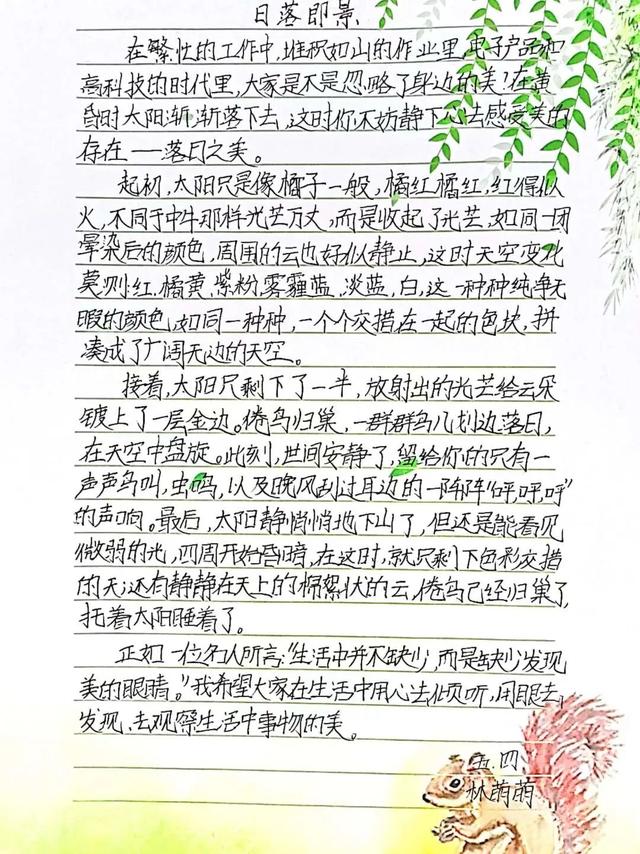 日落即景
在繁忙的工作中,堆积如山的作业里,电子产品和
高科技的时代里,大家是不是忽略了身边的美?在黄
昏时太阳渐渐落下去,这时你不妨静下心去感受美的
存在——落日之美。
起初,太阳只是像橘子一般,橘红橘红,红得似
火,不同于中午那样光芒万丈,而是收起了光芒,如同一团
晕染后的颜色,周围的云也好似静止,这时天空变化
莫测:红,橘黄,紫粉,雾霾蓝,淡蓝,白,这一种种纯净无
暇的颜色,如同一种种,一个个交措在一起的色块,拼
凑成了广阔无边的天空。
接着,太阳只剩下了一半,放射出的光芒给云朵
镀上了一层金边。倦鸟归巢,一群群鸟儿划边落日,
在天空中盘旋。此刻,世间安静了,留给你的只有一
声声鸟叫,虫鸣,以及晚风刮过耳边的一阵阵“呼,呼,呼”
的声响。最后,太阳静悄悄地下山了,但还是能看见
微弱的光,四周开始昏暗,在这时,就只剩下色彩交措
的天;还有静静在天上的棉絮状的云,倦鸟已经归巢了,
托着太阳睡着了。
正如一位名人所言:“生活中并不缺少,而是缺少发现
美的眼睛。”我希望大家在生活中用心去倾听,用眼去
发现、去观察生活中事物的美。
五.四.
林萌萌